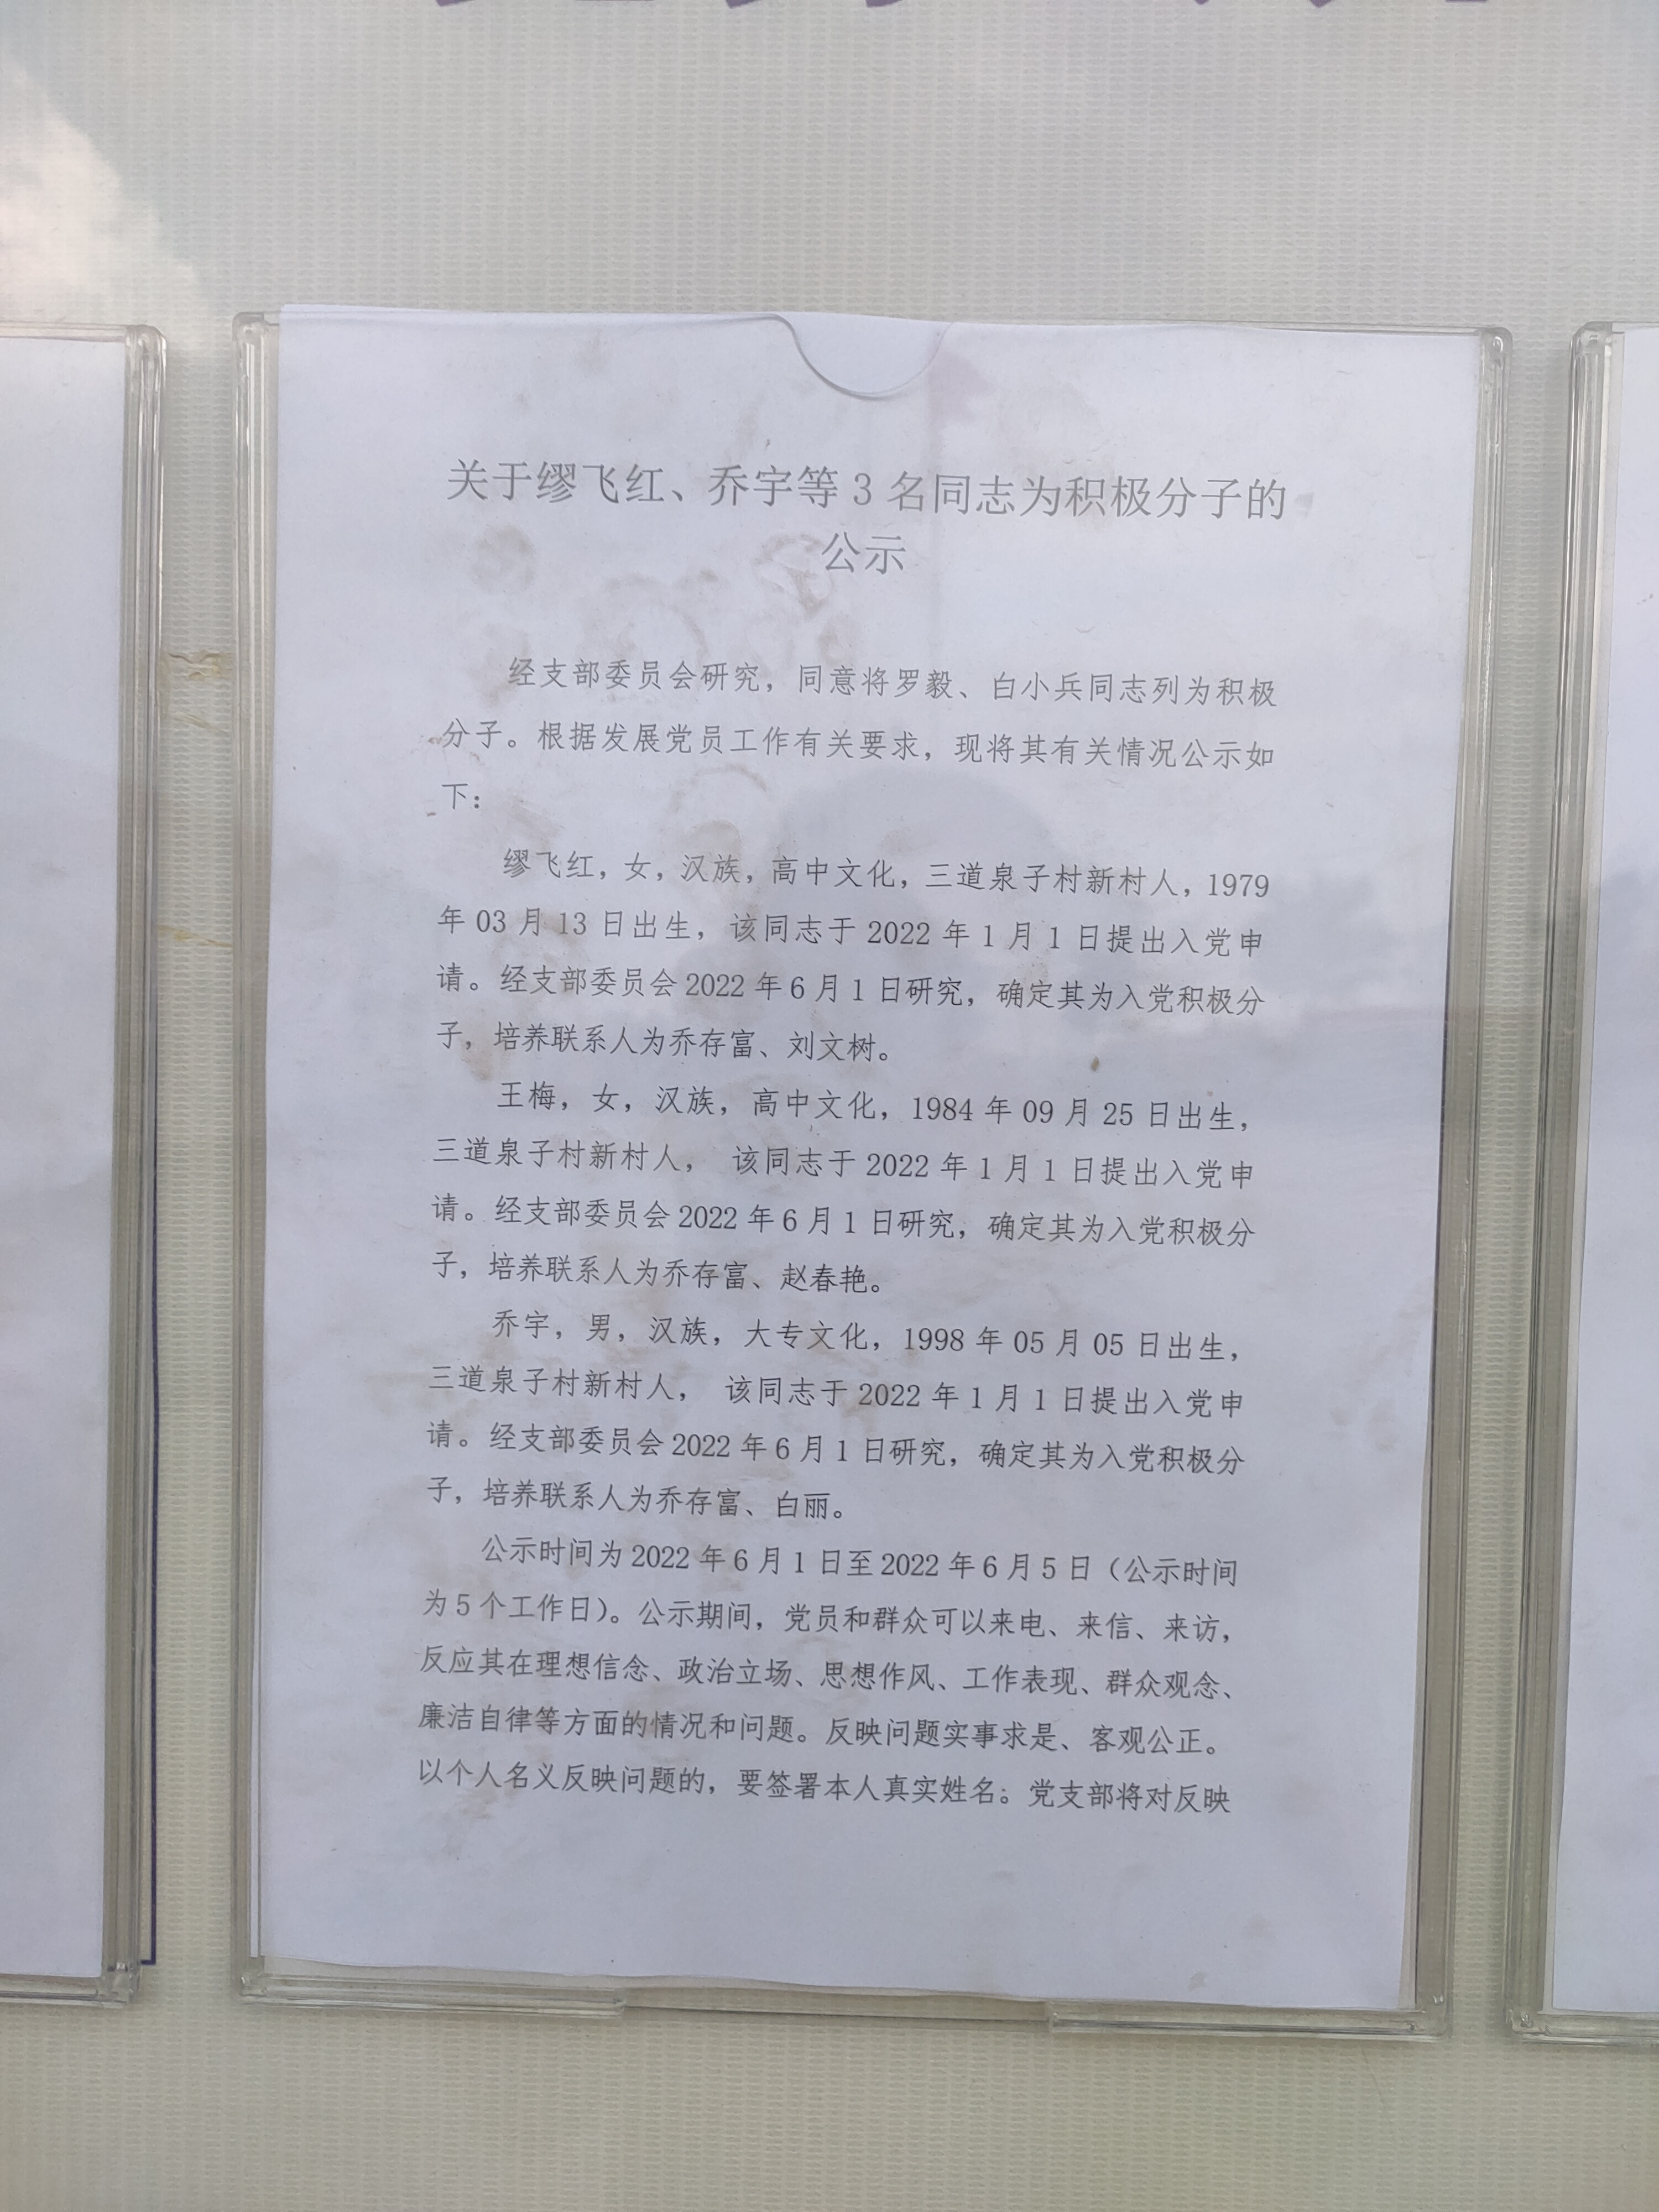 关于缪飞红、乔宇等 3 名同志为积极分子的
公示
经支部委员会研究，同意将罗毅、白小兵同志列为积极
分子。根据发展党员工作有关要求，现将其有关情况公示如
下：
缪飞红，女，汉族，高中文化，三道泉子村新村人，1979
年 03 月 13 日出生，该同志于 2022 年 1 月 1 日提出入党申
请。经支部委员会 2022 年 6 月 1 日研究，确定其为入党积极分
子，培养联系人为乔存富、刘文树。
王梅，女，汉族，高中文化，1984 年 09 月 25 日出生，
三道泉子村新村人， 该同志于 2022 年 1 月 1 日提出入党申
请。经支部委员会 2022 年 6 月 1 日研究，确定其为入党积极分
子，培养联系人为乔存富、赵春艳。
乔宇，男，汉族，大专文化，1998 年 05 月 05 日出生，
三道泉子村新村人， 该同志于 2022 年 1 月 1 日提出入党申
请。经支部委员会 2022 年 6 月 1 日研究，确定其为入党积极分
子，培养联系人为乔存富、白丽。
公示时间为 2022 年 6 月 1 日至 2022 年 6 月 5 日（公示时间
为 5 个工作日）。公示期间，党员和群众可以来电、来信、来访，
反应其在理想信念、政治立场、思想作风、工作表现、群众观念、
廉洁自律等方面的情况和问题。反映问题实事求是、客观公正。
以个人名义反映问题的，要签署本人真实姓名；党支部将对反映